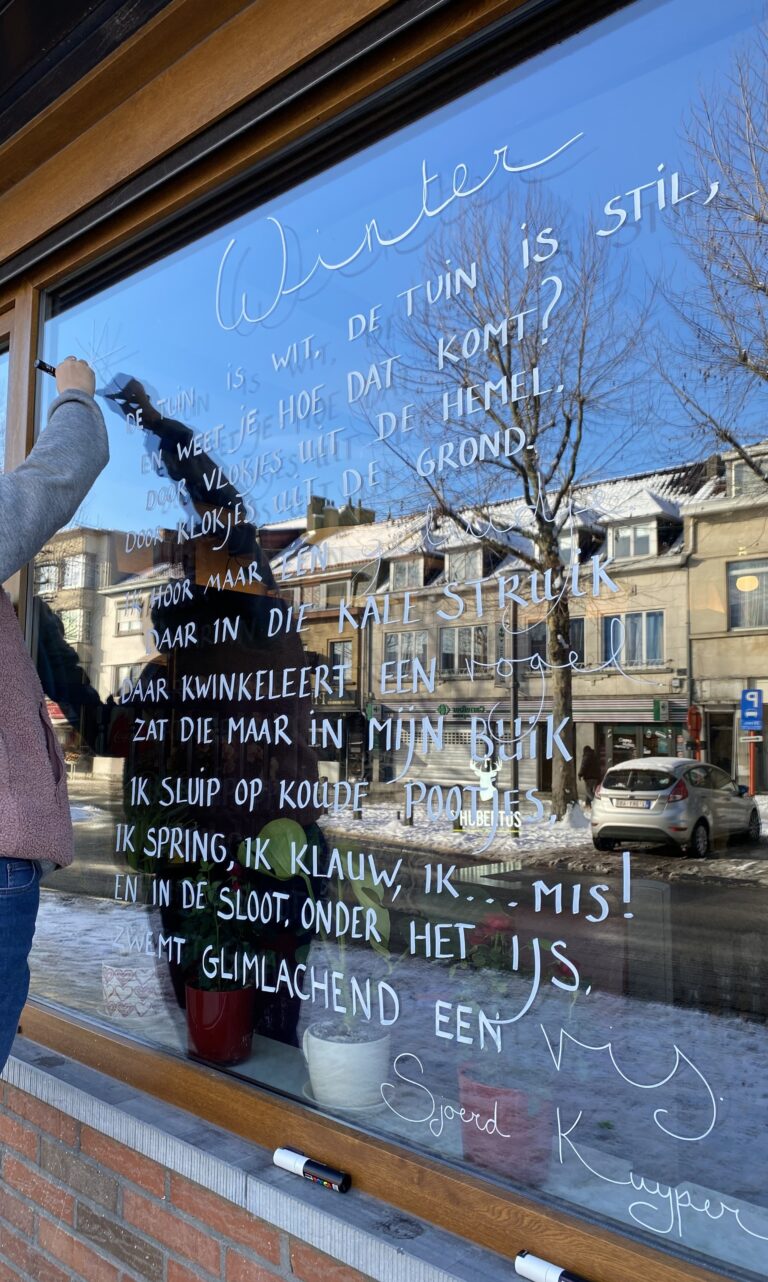 Winter
DE TUIN IS WIT, DE TUIN IS STIL,
EN WEET JE HOE DAT KOMT?
DOOR VLOKJES UIT DE HEMEL,
DOOR KLOKJES UIT DE GROND.
IK HOOR MAAR ÉÉN geluidje
DAAR IN DIE KALE STRUIK
DAAR KWINKELEERT EEN vogel
ZAT DIE MAAR IN MIJN BUIK
IK SLUIP OP KOUDE POOTJES,
IK SPRING, IK KLAUW, IK... MIS!
EN IN DE SLOOT, ONDER HET IJS,
ZWEMT GLIMLACHEND EEN vis.
Sjoerd Kuyper
HUBERTUS
P